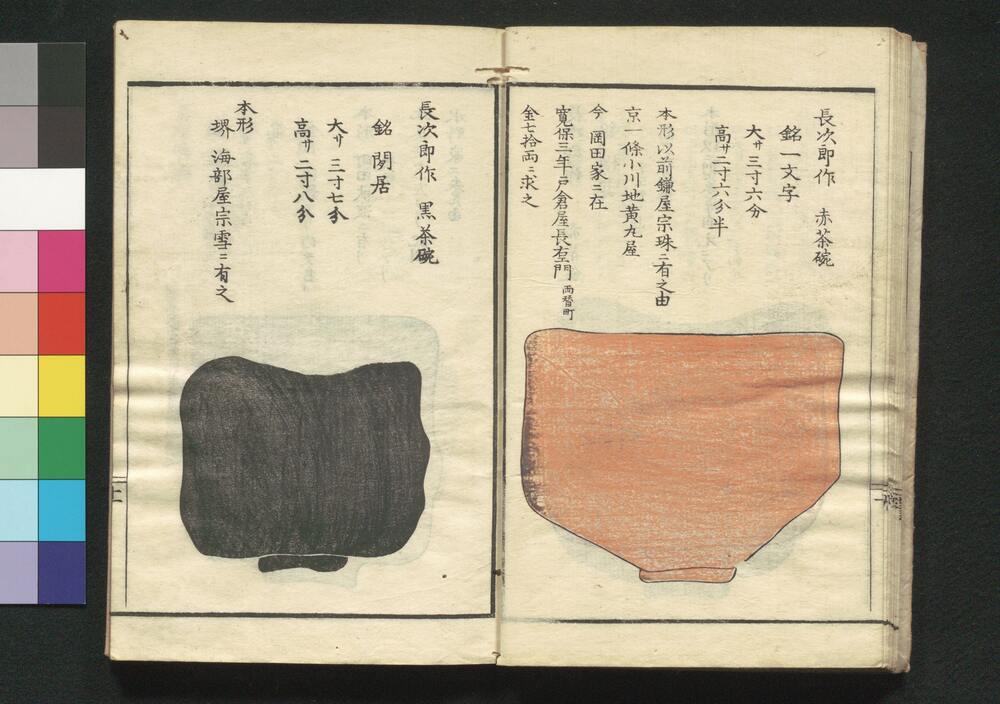 長次郎作 赤茶碗
銘一文字
大サ三寸六分
高サ二寸六分半
本形以前鎌屋宗珠ニ有之由
京一條小川地黄丸屋
今 岡田家ニ在
寛保三年戸倉屋長左門 両替町
金七拾両ニ求之
長次郎作 黒茶碗
銘 閑居
大サ 三寸七分
高サ 二寸八分
本形
堺 海部屋宗雪ニ有之